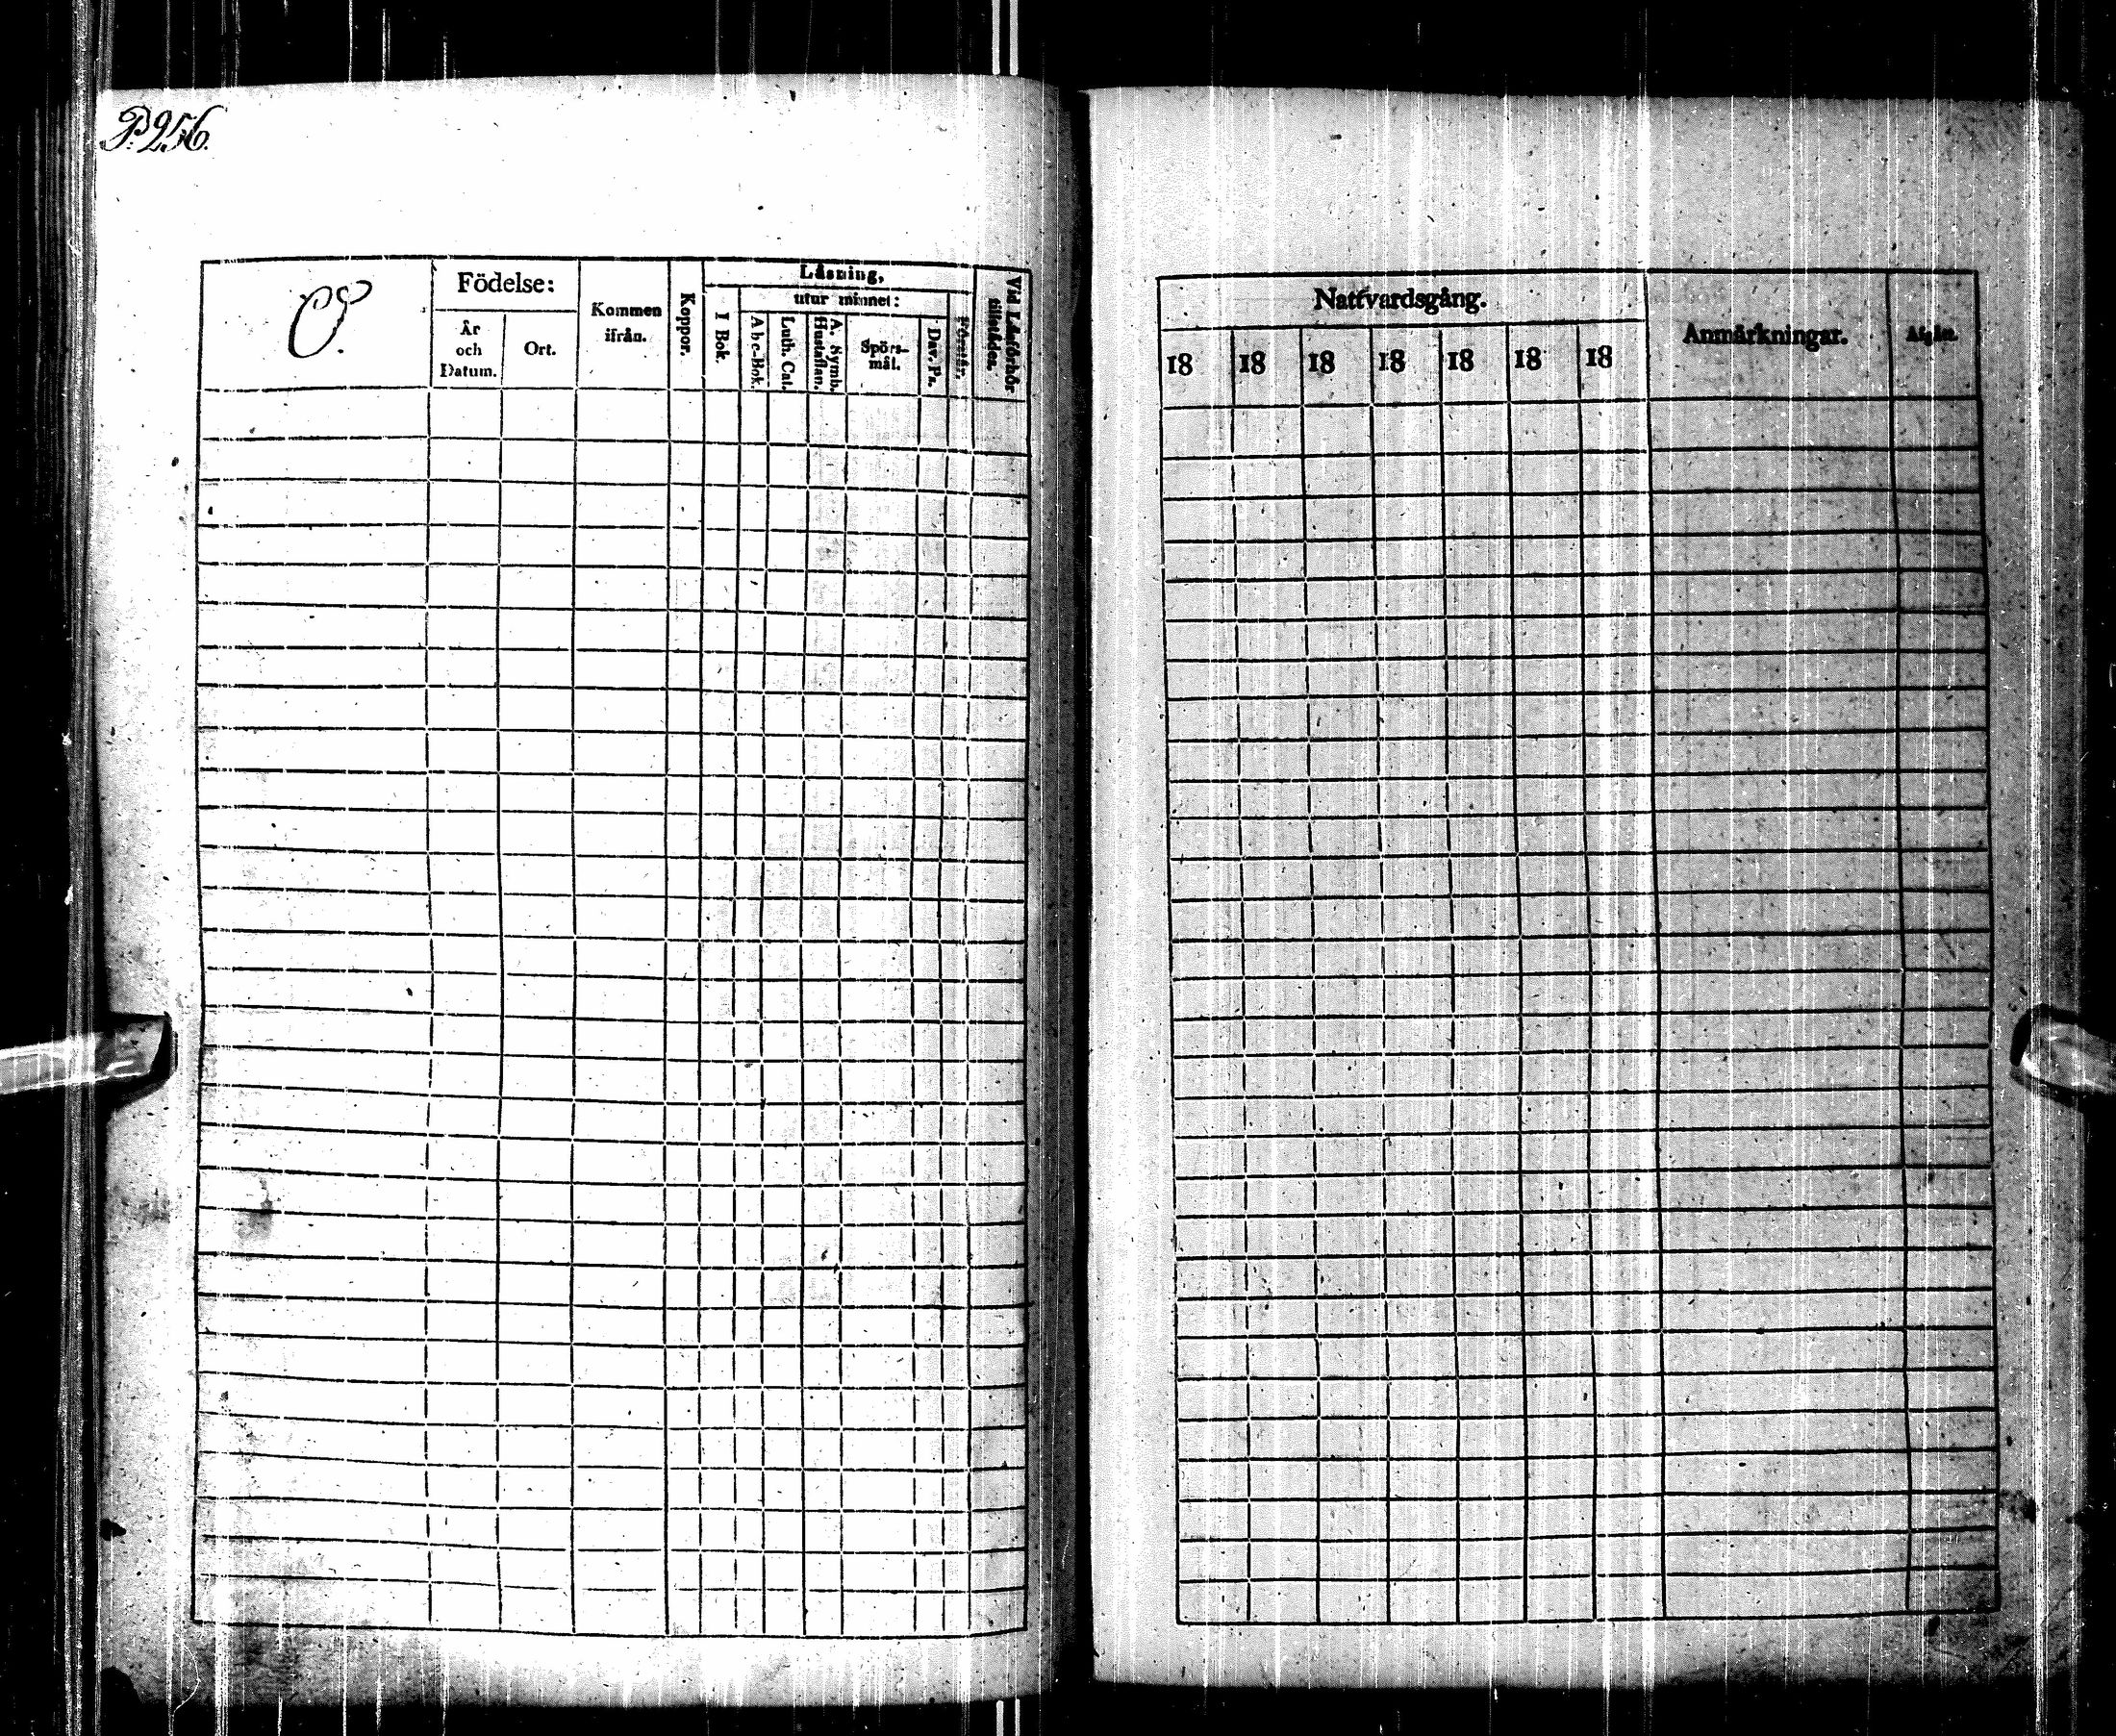 P. 256.
O.
Födelse:
År
och
Datum.
Ort.
Kommen
ifrån.
Koppor.
Läsning,
utur minnet:
I Bok.
Abc-Bok.
Luth. Cat.
A. Symb.
Hustaflan.
Spörs-
mål.
Dav. Ps.
Förstår.
Vid Läsförhör
tillstädes.
Nattvardsgång.
18 18 18 18 18 18 18
Anmärkningar.
Afgått.